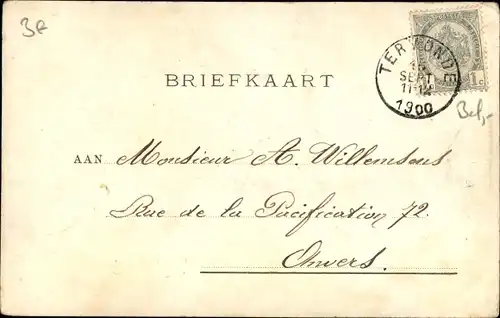 3e
TERMONDE
SEPT
11-12
1900
1c
BRIEFKAART
Bel,-
AAN Monsieur A. Willemsens
Rue de la Pacification, 72.
Anvers.